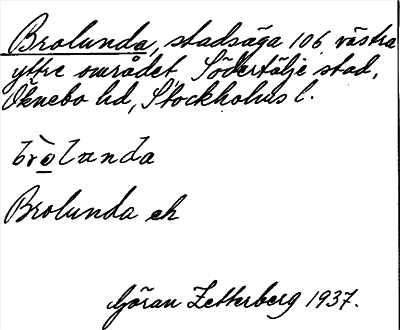 Brolunda, stadsäga 106 västra
yttre området, Södertälje stad,
Öknebo hd, Stockholms l.
brò̲lunda
Brolunda ek
Göran Zetterberg 1937.